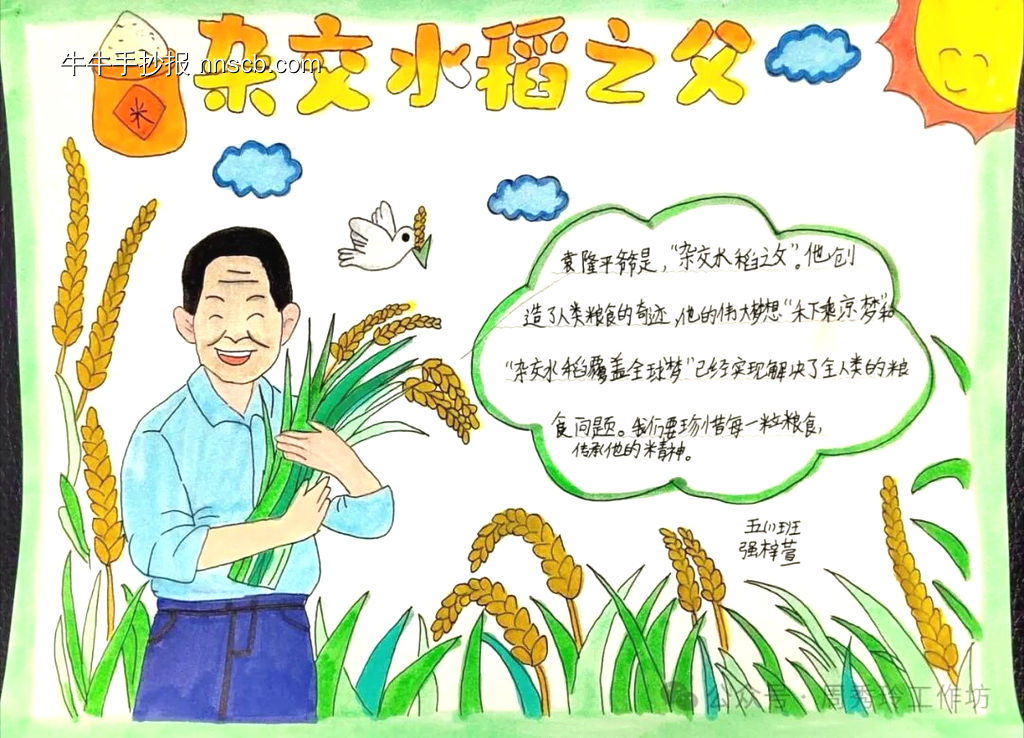 牛牛手抄报 nnscb.com
杂交水稻之父
米
袁隆平爷爷是，“杂交水稻之父”。他创
造了人类粮食的奇迹，他的伟大梦想“禾下乘凉梦”和
“杂交水稻覆盖全球梦”已经实现解决了全人类的粮
食问题。我们要珍惜每一粒粮食，
传承他的精神。
五(1)班
强梓萱
公众号·周秀玲工作坊